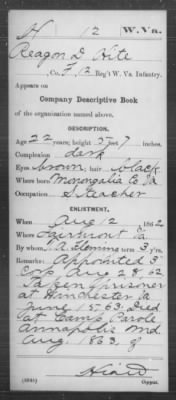 H 12 W.Va.
Reason D Hite
, Co. F, 12 Reg't W. Va. Infantry.
Appears on
Company Descriptive Book
of the organization named above.
DESCRIPTION.
Age 22 years; height 5 feet 7 inches.
Complexion dark
Eyes brown; hair black
Where born Monongalia Co Va
Occupation S. teacher
ENLISTMENT.
When Aug 12, 1862
Where Fairmont Va
By whom Fleming term 3 y'rs.
Remarks: Appointed 3"
Corp Aug 28 62
Taken prisoner
at Winchester Va
June 15 63. Died
at Camp Parole
Annapolis Md
Aug. 1863 of
Heard
Copyist.